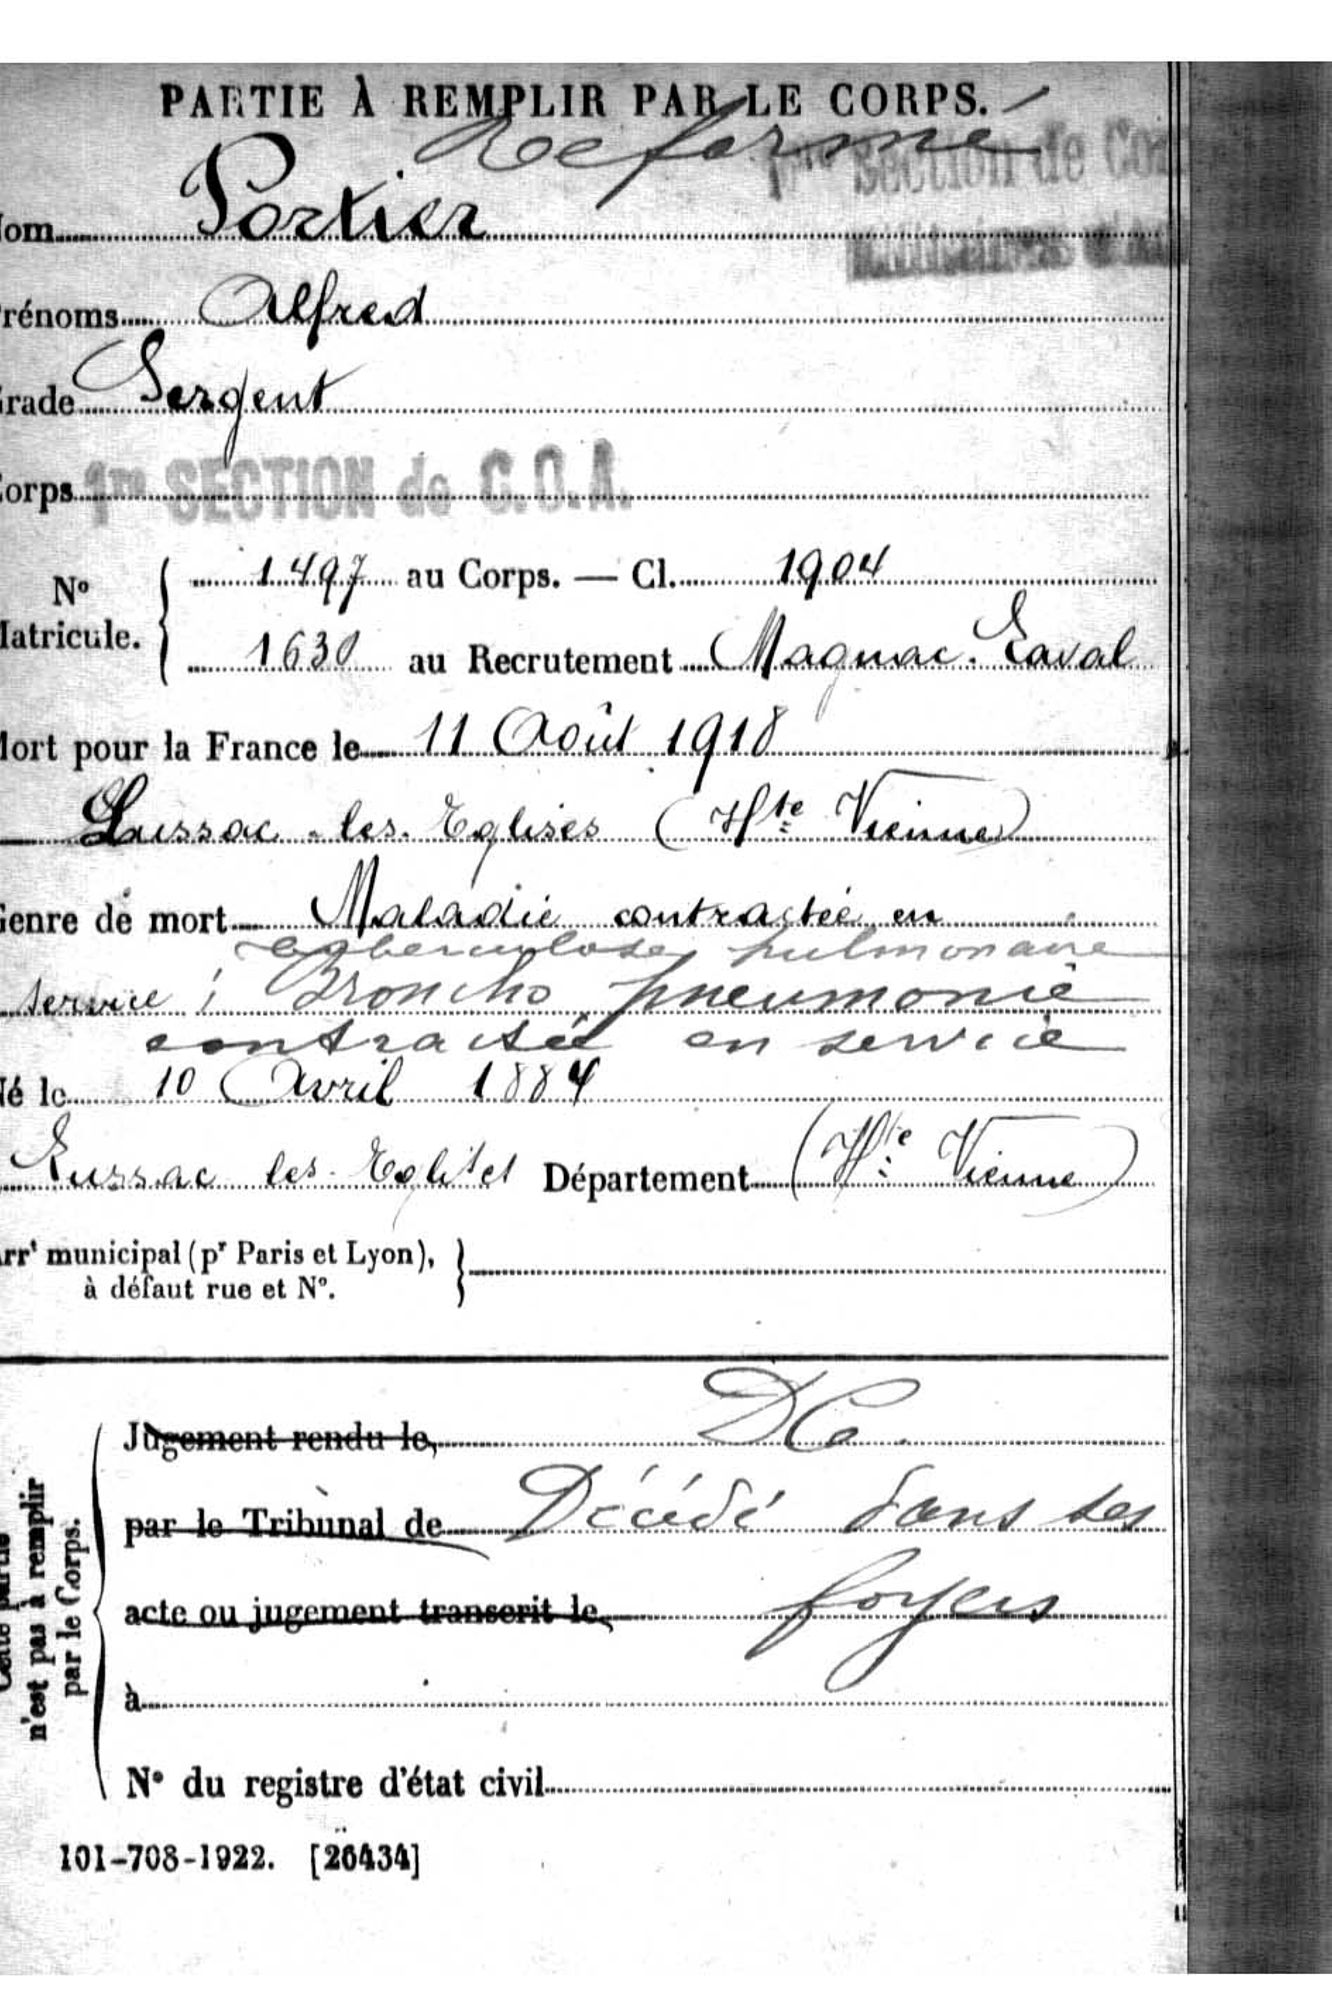 PARTIE À REMPLIR PAR LE CORPS.
Reformé
1re Section de Co
om Portier
rénoms Alfred
rade Sergent
orps 1re SECTION de C.O.A.
No Matricule. { 1497 au Corps. — Cl. 1904
1630 au Recrutement Magnac-Laval
ort pour la France le 11 Août 1918
Lussac-les-Eglises (Hte Vienne)
enre de mort Maladie contractée en
tuberculose pulmonaire
service ; Broncho pneumonie
contractée en service
é le 10 Avril 1884
Lussac les-Eglises Département (Hte Vienne)
rrt municipal (pr Paris et Lyon),
à défaut rue et No.
DC.
Jugement rendu le,
par le Tribunal de Décédé dans ses
acte ou jugement transcrit le, foyers
à
No du registre d'état civil
Cette partie
n'est pas à remplir
par le Corps.
101-708-1922. [26434]